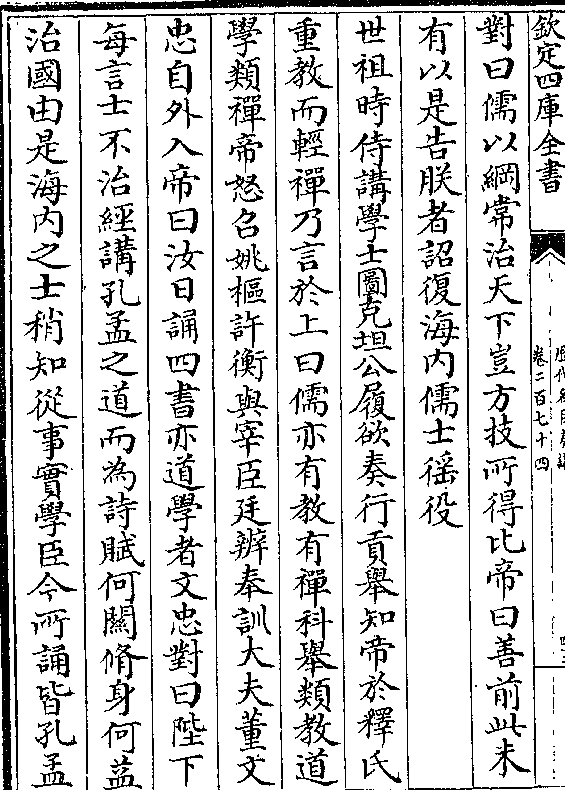 欽定四庫全書
卷二百七十四
對曰儒以綱常治天下豈方技所得比帝曰善前此未
有以是告朕者詔復海内儒士徭役
世祖時侍講學士圖克坦公履欲奏行貢舉知帝於釋氏
重教而輕禪乃言於上曰儒亦有教有禪科舉類教道
學類禪帝怒召姚樞許衡與宰臣廷辨奉訓大夫董文
忠自外入帝曰汝日誦四書亦道學者文忠對曰陛下
每言士不治經講孔孟之道而為詩賦何關脩身何益
治國由是海内之士稍知從事實學臣今所誦皆孔孟